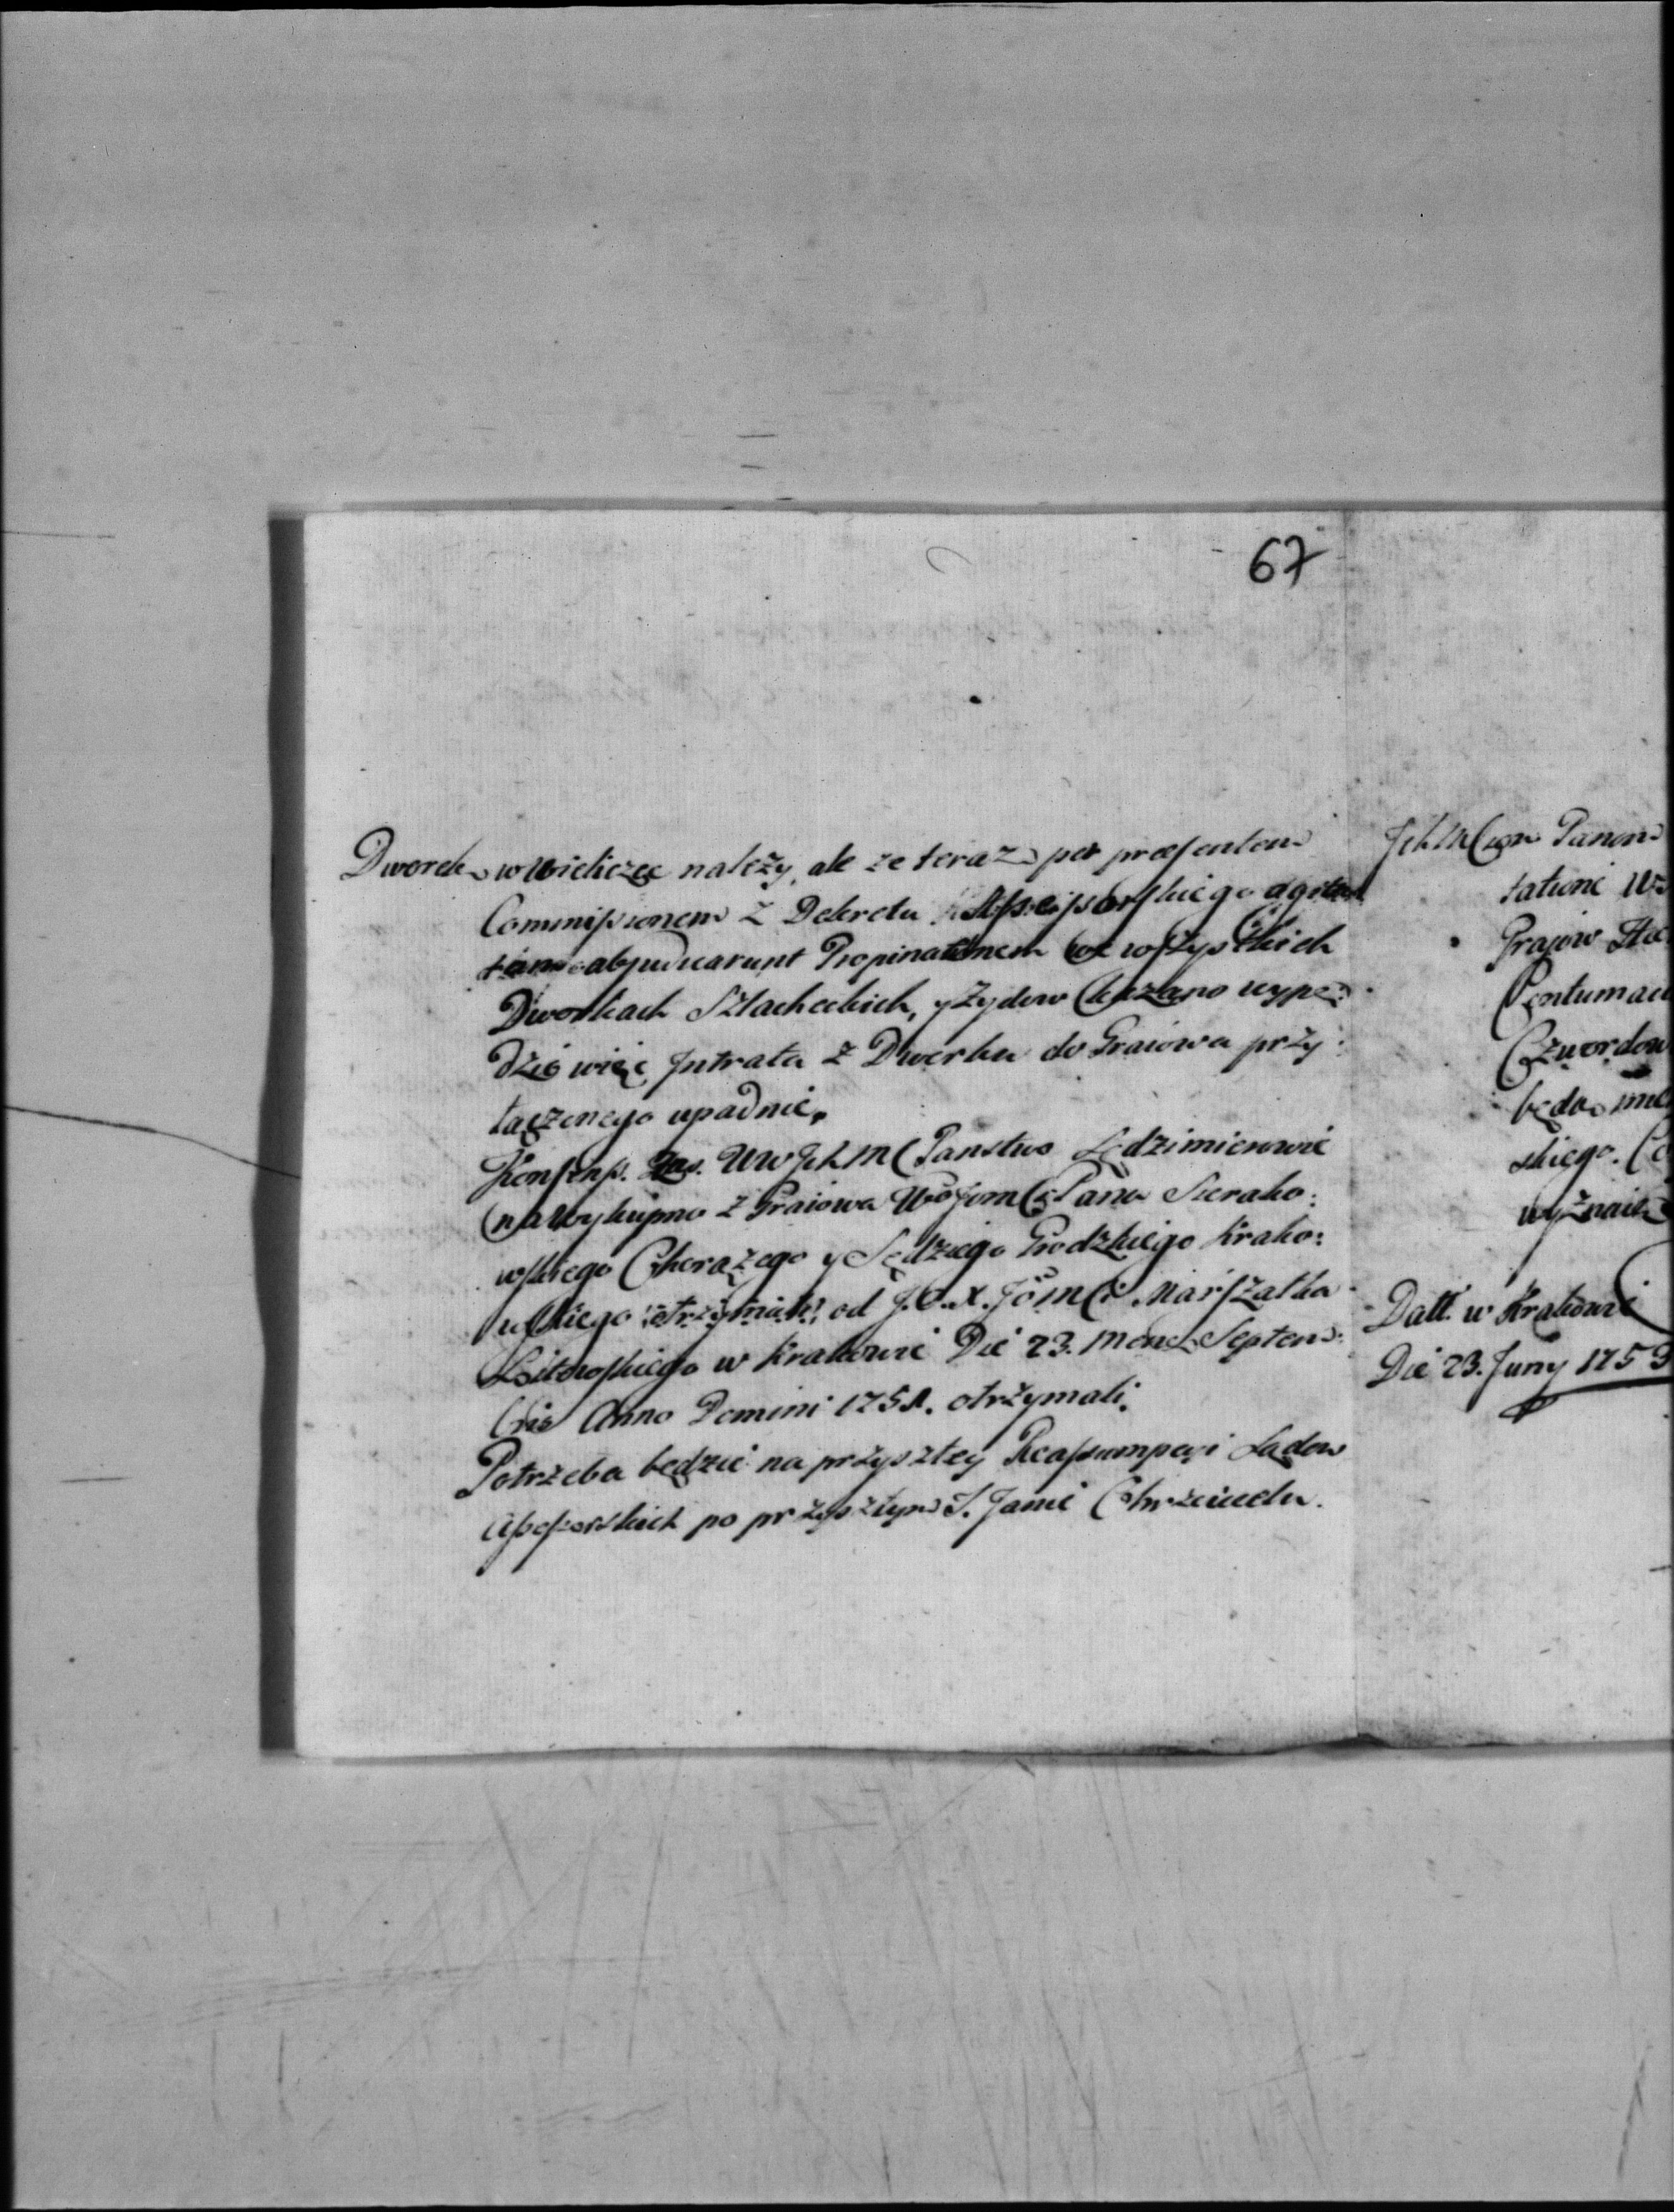 67
Dworek w Wieliczce należy, ale że teraz per præsentem
Commissionem z Dekretu Assessorskiego
abjudicarunt Propinationem we wszystkich
Dworkach Szlacheckich, y Zydow kazano wype:
dzić więc Intrata z Dworku do Graiowa przy:
łączonego upadnie.
Konsens. Zas. WW JchMC Panstwo Lędzimierowie
na Wykupno z Graiowa Wo JomCi Pana Sierako:
wskiego Chorążego y Sędziego Grodzkiego Krako:
wskiego od J. O. X. JoMCi Marszałka
Litewskiego w Krakowie Die 23. Mens. Septem:
bris Anno Domini 1751. otrzymali.
Potrzeba będzie na przyszłey Reassumpcyi Sądow
Assessorskich po przyszłym S. Janie Chrzcicielu.
Panom
tatione
Graiow
Contumac
będą
skiego.
Datt. w Krakowie
Die 23. Juny 1753